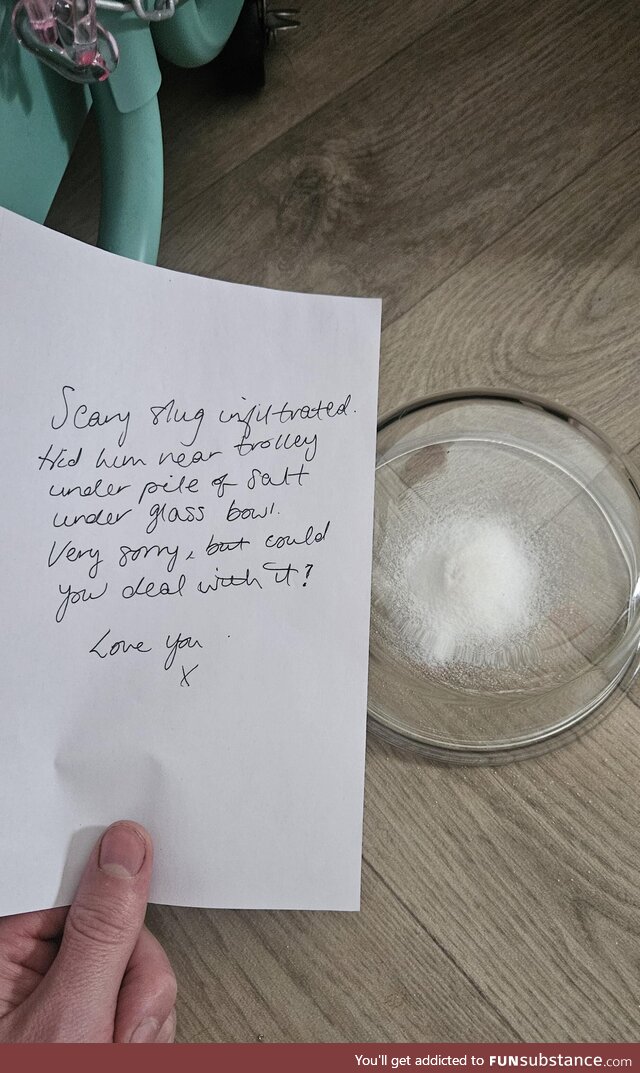 Scary slug infiltrated.
Hid him near trolley
under pile of salt
under glass bowl.
Very sorry, but could
you deal with it?
Love you
X
You'll get addicted to FUNsubstance.com